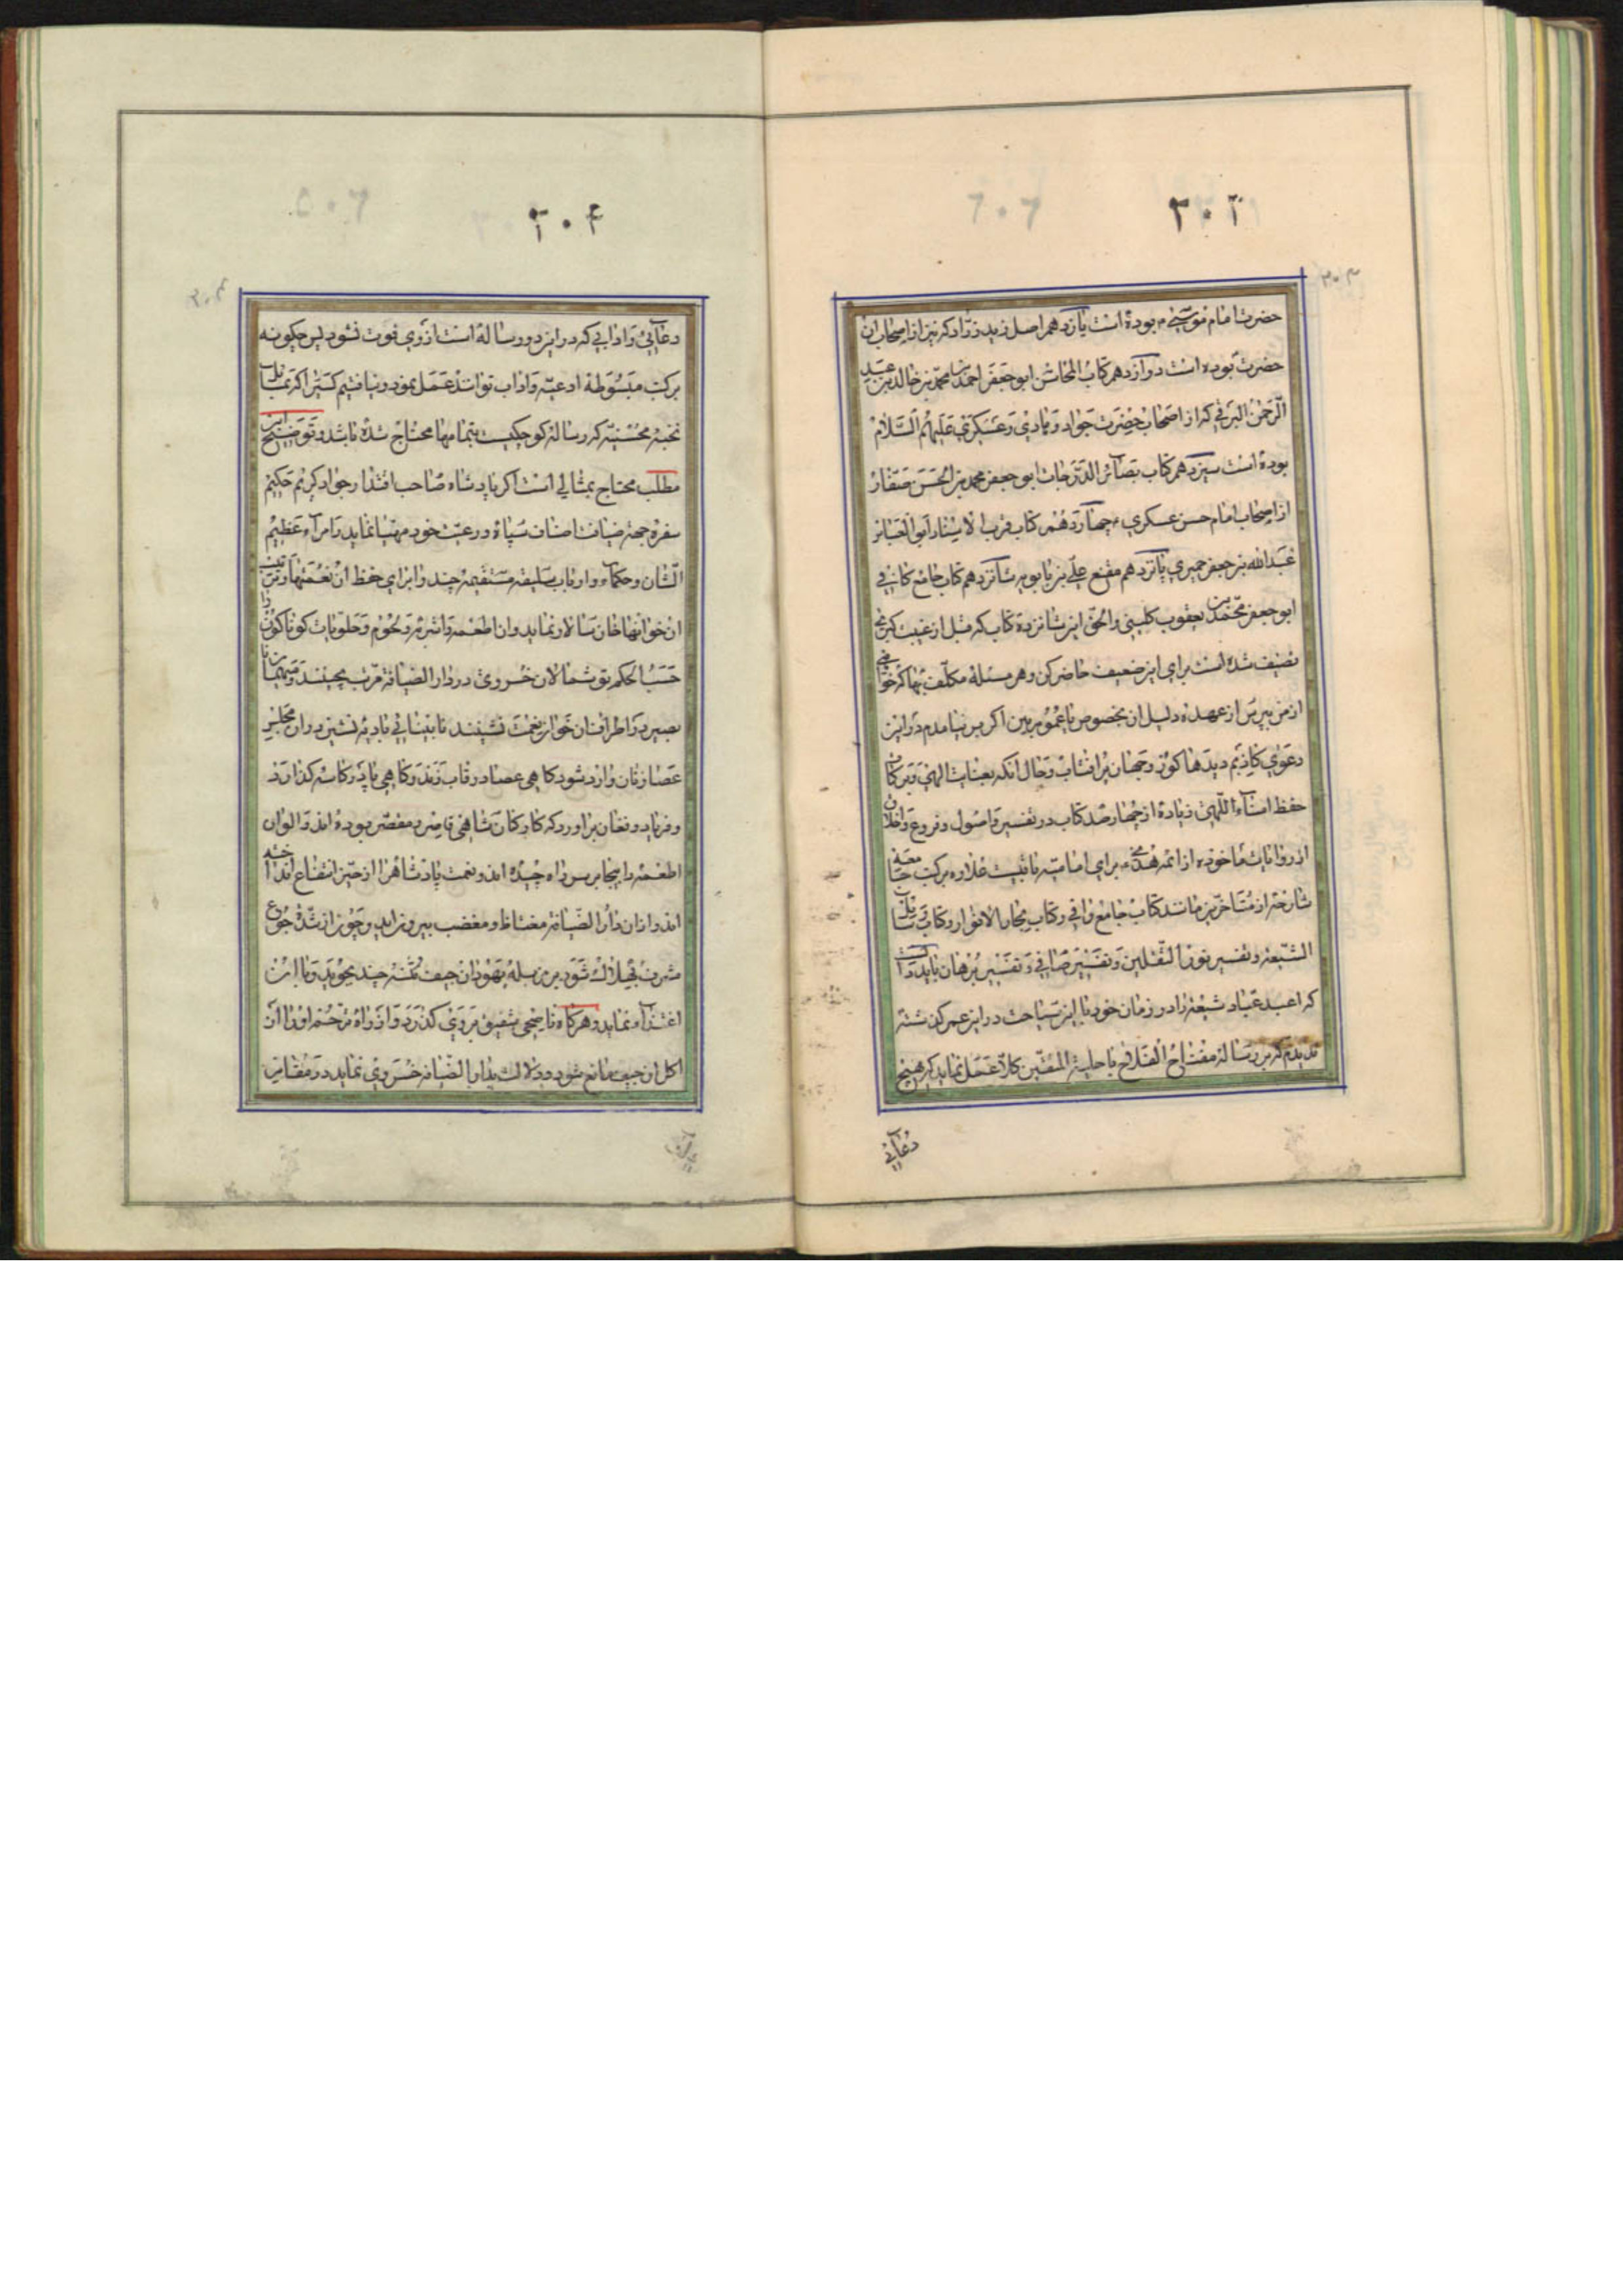 ۳۰۳
حضرت امام موسی ع بوده است یازدهم اصل زید زرّاد که نیز از اصحاب آن
حضرت بوده است دوازدهم کتاب المحاسن ابو جعفر احمد بن محمّد بن خالد بن عبد
الرّحمن البرقی که از اصحاب حضرت جواد و هادی و عسکری علیهم السّلام
بوده است سیزدهم کتاب بصائر الدّرجات ابو جعفر محمد بن الحسن صفّار
از اصحاب امام حسن عسکری ع چهاردهم کتاب قرب الاسناد ابو العباس
عبد الله بن جعفر حمیری پانزدهم مقنع علی بن بابویه شانزدهم کتاب جامع کافی
ابو جعفر محمّد بن یعقوب کلینی و الحق این شانزده کتاب که قبل از غیبت کبری
تصنیف شده است برای این ضعیف حاضر کن و هر مسئله مکلّف بها که خواهی
از من بپرس از عهده دلیل آن بخصوص یا عموم ببین اگر بر نیامدم در این
دعوی کاذبم دیدها کور و جهان پر افتاب و حال آنکه بعنایت الهی و برکات
حفظ امناء اللهی زیاده از چهار صد کتاب در تفسیر و اصول و فروع و اخلاق
از روایات ماخوذه از ائمه هدی ع برای امامیه باقیست علاوه بر کتب جامعه
شارحه از متأخّرین مانند کتاب جامع وافی و کتاب بحار الانوار و کتاب وسائل
الشّیعه و تفسیر نور الثّقلین و تفسیر صافی و تفسیر برهان باید دانست
که اعبد عبّاد شیعه را در زمان خود با این سیاحت در این عمر گذشته
ندیدم که بر رساله مفتاح الفلاح یا حلیة المتّقین کلّا عمل نماید که هیچ
دعائی
۳۰۴
دعائی و ادابی که در این دو رساله است از وی فوت نشود پس چگونه
بر کتب مبسوطه ادعیّه و اداب توانند عمل نمود و نیافتیم کسی را که بمسائل
نخبه محسنیّه که رساله کوچکیست بتمامها محتاج شده باشد و توضیح این
مطلب محتاج بمثالی است اگر پادشاه صاحب اقتدار جواد کریم حکیم
سفره جهة ضیافت اصناف سپاه و رعیّت خود مهیّا نماید و امراء عظیم
الشّان و حکماء و ارباب سلیقه مستقیمه چند را برای حفظ آن نعمتها و ترتیب
آن خوانها خان سالار نماید و آن اطعمه و اشربه و لحوم و حلویات گوناگون را
حسب الحکم توشمالان خسروی در دار الضیافة مرتّب بچینند و میهمانان
بصیر در اطراف آن خوان نعمت نشینند نابینائی بادیه نشین در آن مجلس
عصا زنان وارد شود گاهی عصا در قاب زند و گاهی پا در کاسه گذارد
و فریاد و فغان بر اورد که کارکنان شاهی قاصر و مقصّر بوده اند و الوان
اطعمه را بیجا بر سر راه چیده اند و نعمت پادشاهرا از حیّز انتفاع انداخته
اند و از آن دار الضّیافة مغتاظ و مغضب بیرون اید و چون از شدّة جوع
مشرف بهلاک شود بر مزبله یهودان جیف مُنتنه چند بجوید و با آن
اغتذاء نماید و هرگاه ناصحی شفیق بر وی گذرد و از راه ترحّم او را از
اکل آن جیف مانع شود و دلالت بدار الضّیافه خسروی نماید در مقابل